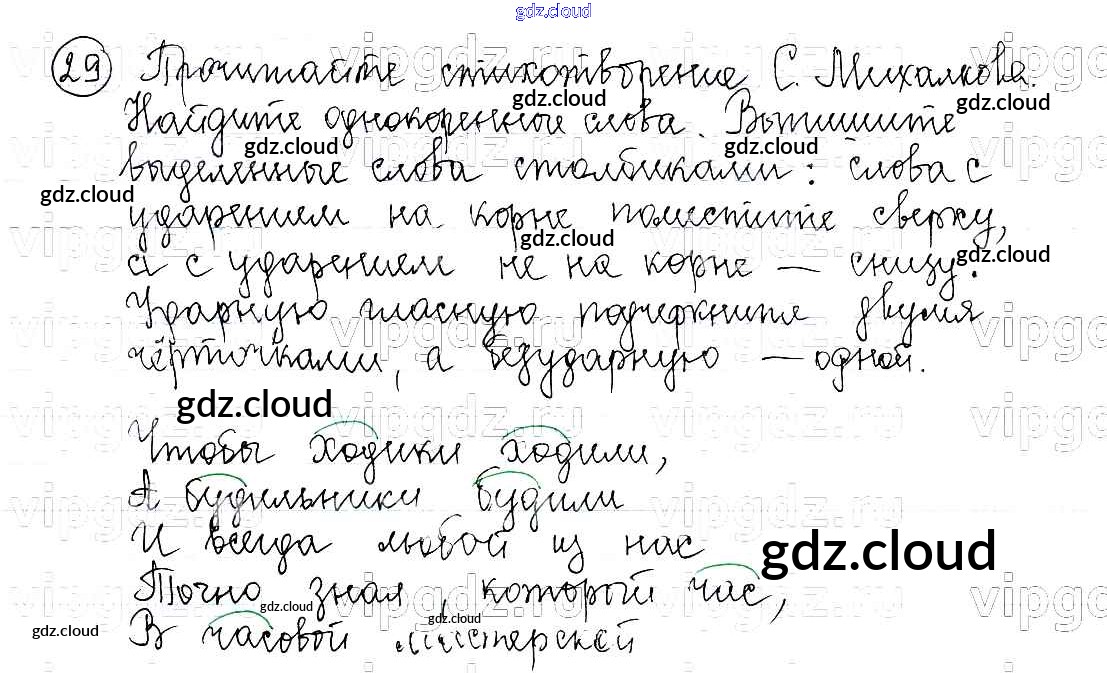 gdz.cloud
29 Прочитайте стихотворение С. Михалкова.
gdz.cloud gdz.cloud
Найдите однокоренные слова. Выпишите
gdz.cloud gdz.cloud
выделенные слова столбиками: слова с
gdz.cloud
ударением на корне поместите сверху,
gdz.cloud gdz.cloud
а с ударением не на корне — снизу.
Ударную гласную подчеркните двумя
чёрточками, а безударную — одной.
gdz.cloud
Чтобы ходики ходили,
А будильники будили
И всегда любой из нас
gdz.cloud
Точно знал, который час,
gdz.cloud gdz.cloud gdz.cloud
В часовой мастерской